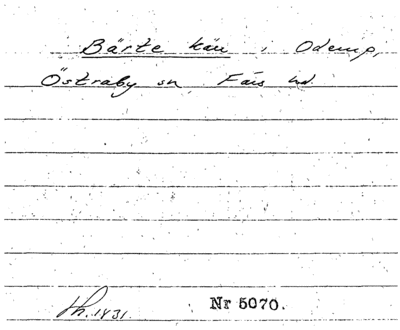 Bärte kär i Odemp,
Östraby sn Färs hd.
Lh. 1931. Nr 5070.